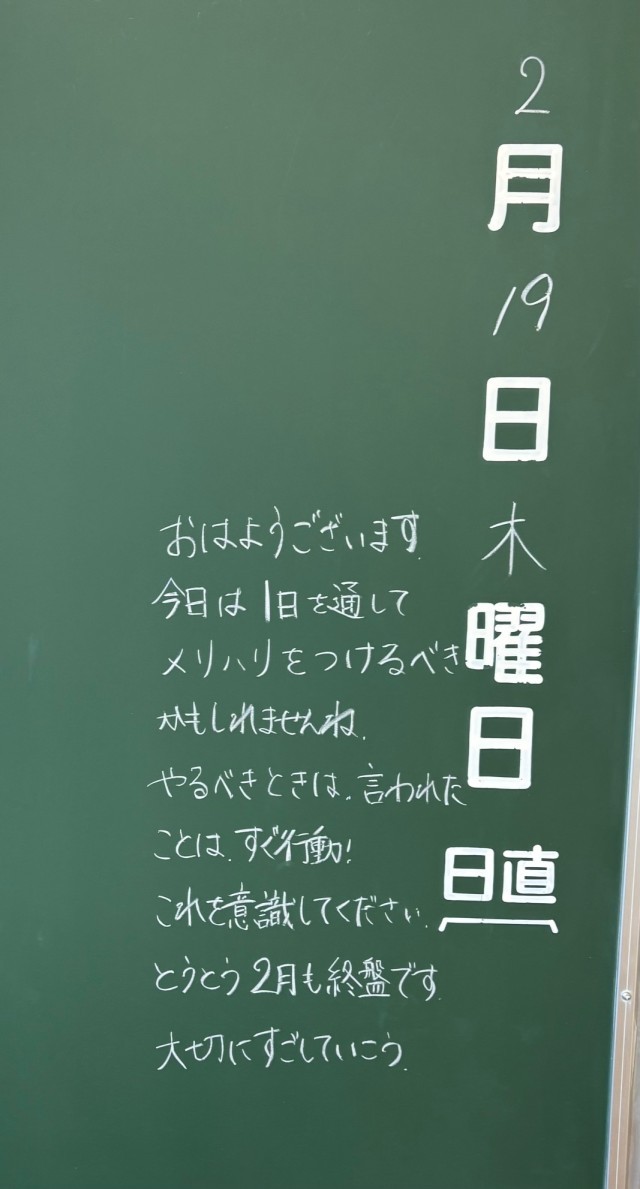 2月19日木曜日
日直
おはようございます.
今日は1日を通して
メリハリをつけるべき
かもしれませんね.
やるべきときは.言われた
ことは.すぐ行動!
これを意識してください.
とうとう2月も終盤です.
大切にすごしていこう.